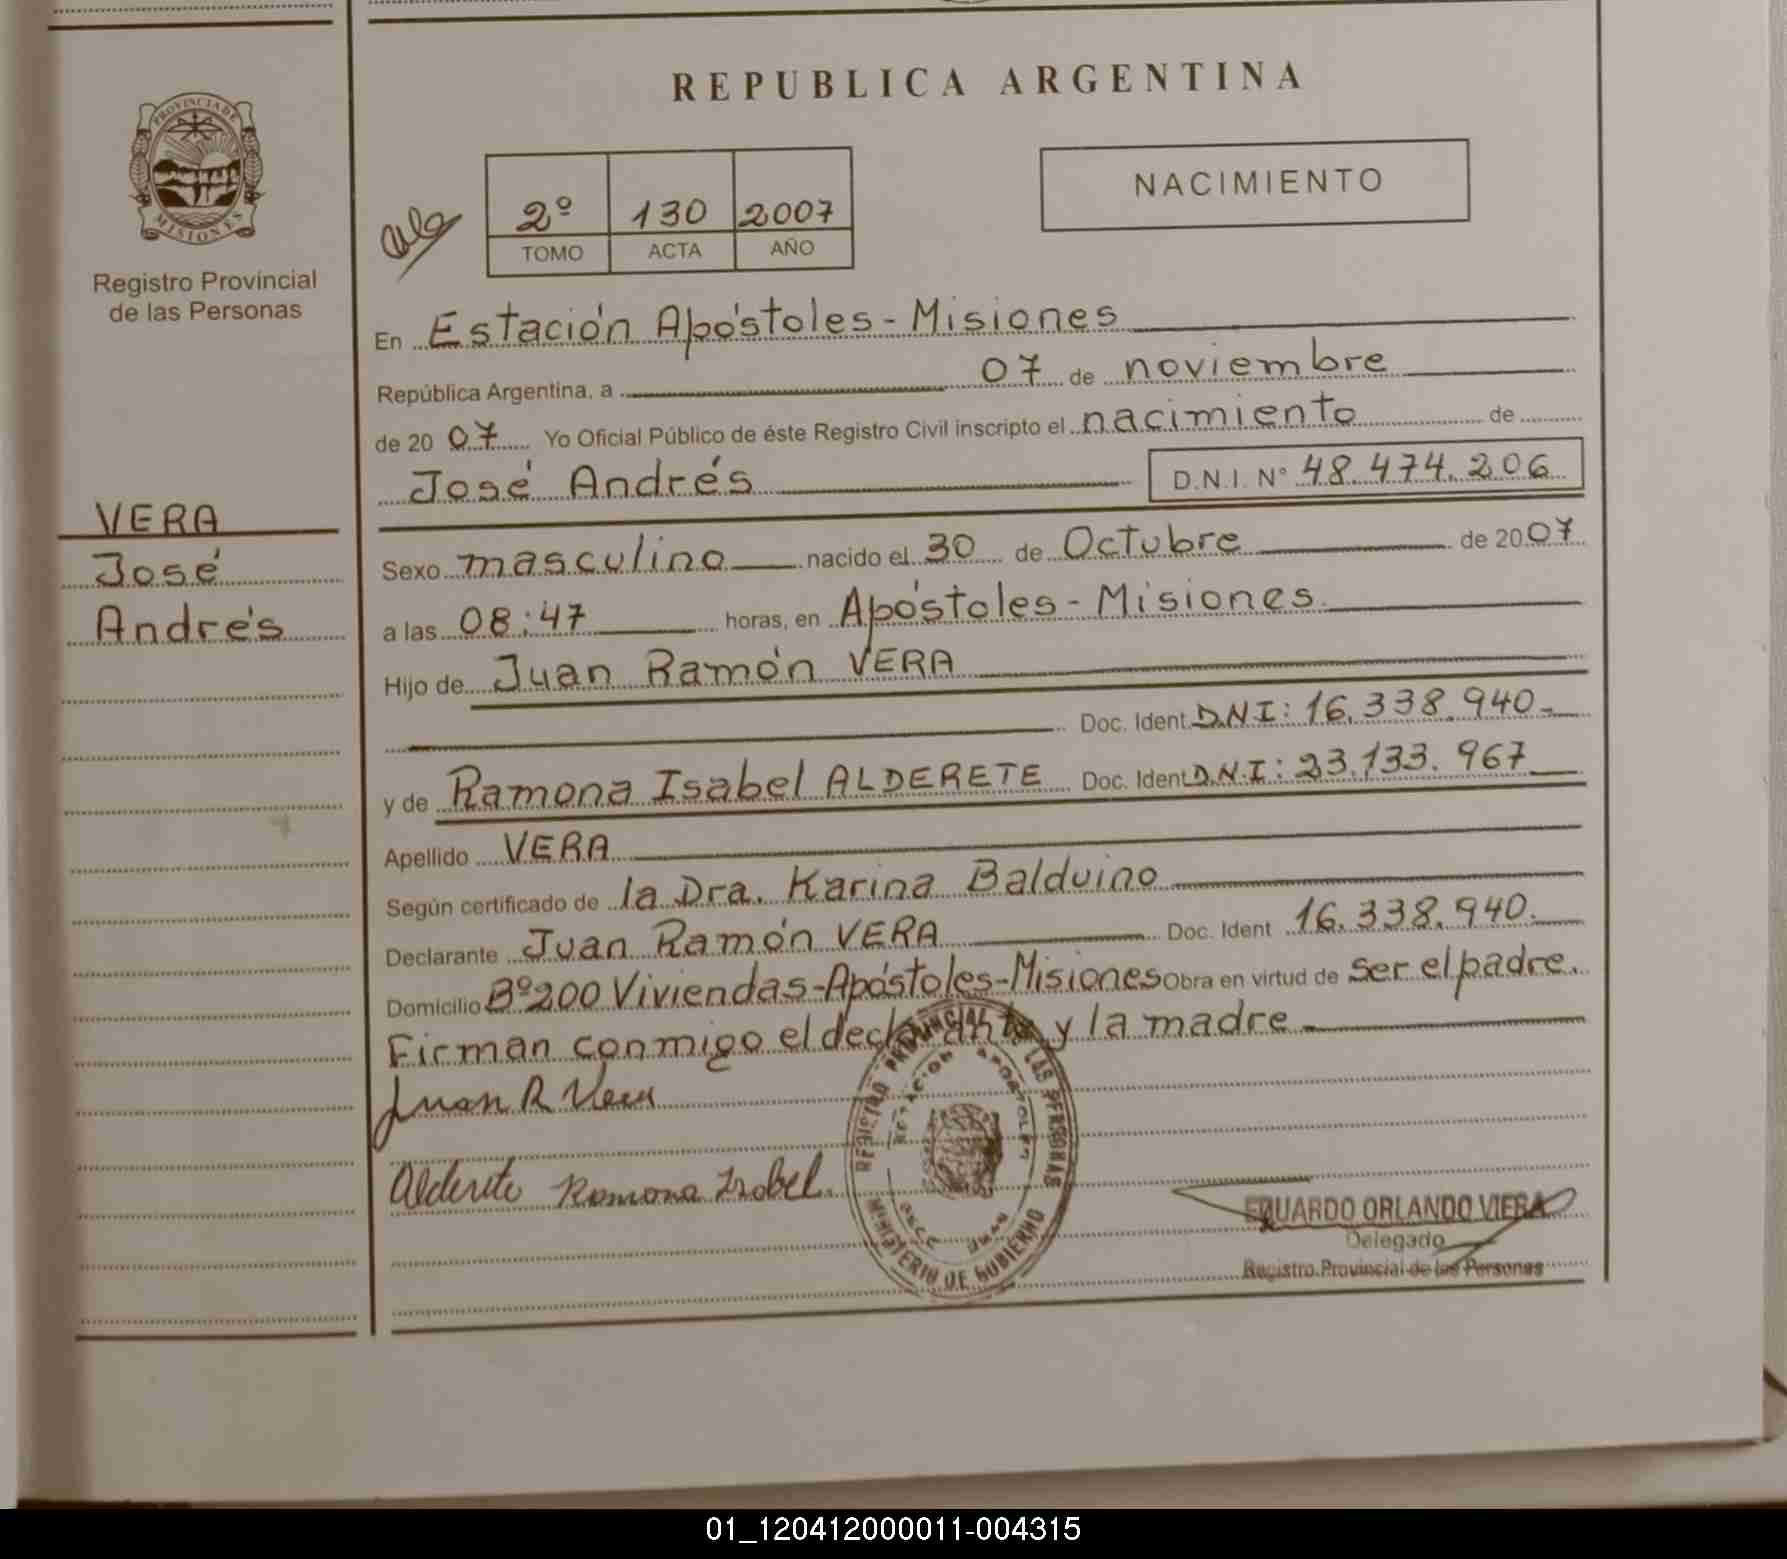 REPUBLICA ARGENTINA
PROVINCIA DE
MISIONES
Registro Provincial
de las Personas
2º 130 2007
TOMO ACTA AÑO
NACIMIENTO
En Estación Apóstoles - Misiones
República Argentina, a 07 de noviembre
de 20 07 Yo Oficial Público de éste Registro Civil inscripto el nacimiento de
José Andrés D.N.I. Nº 48.474.206
VERA
José
Andrés
Sexo masculino nacido el 30 de Octubre de 2007
a las 08:47 horas, en Apóstoles - Misiones.
Hijo de Juan Ramón VERA
Doc. Ident. DNI: 16.338.940-
y de Ramona Isabel ALDERETE Doc. Ident D.N.I: 23.133.967
Apellido VERA
Según certificado de la Dra. Karina Balduino
Declarante Juan Ramón VERA Doc. Ident 16.338.940.
Domicilio Bº200 Viviendas-Apóstoles-Misiones Obra en virtud de ser el padre.
Firman conmigo el declarante y la madre
Juan R Vera
Alderete Ramona Isabel.
REGISTRO PROVINCIAL DE LAS PERSONAS
MINISTERIO DE GOBIERNO
EDUARDO ORLANDO VIERA
Delegado
Registro Provincial de las Personas
01_120412000011-004315